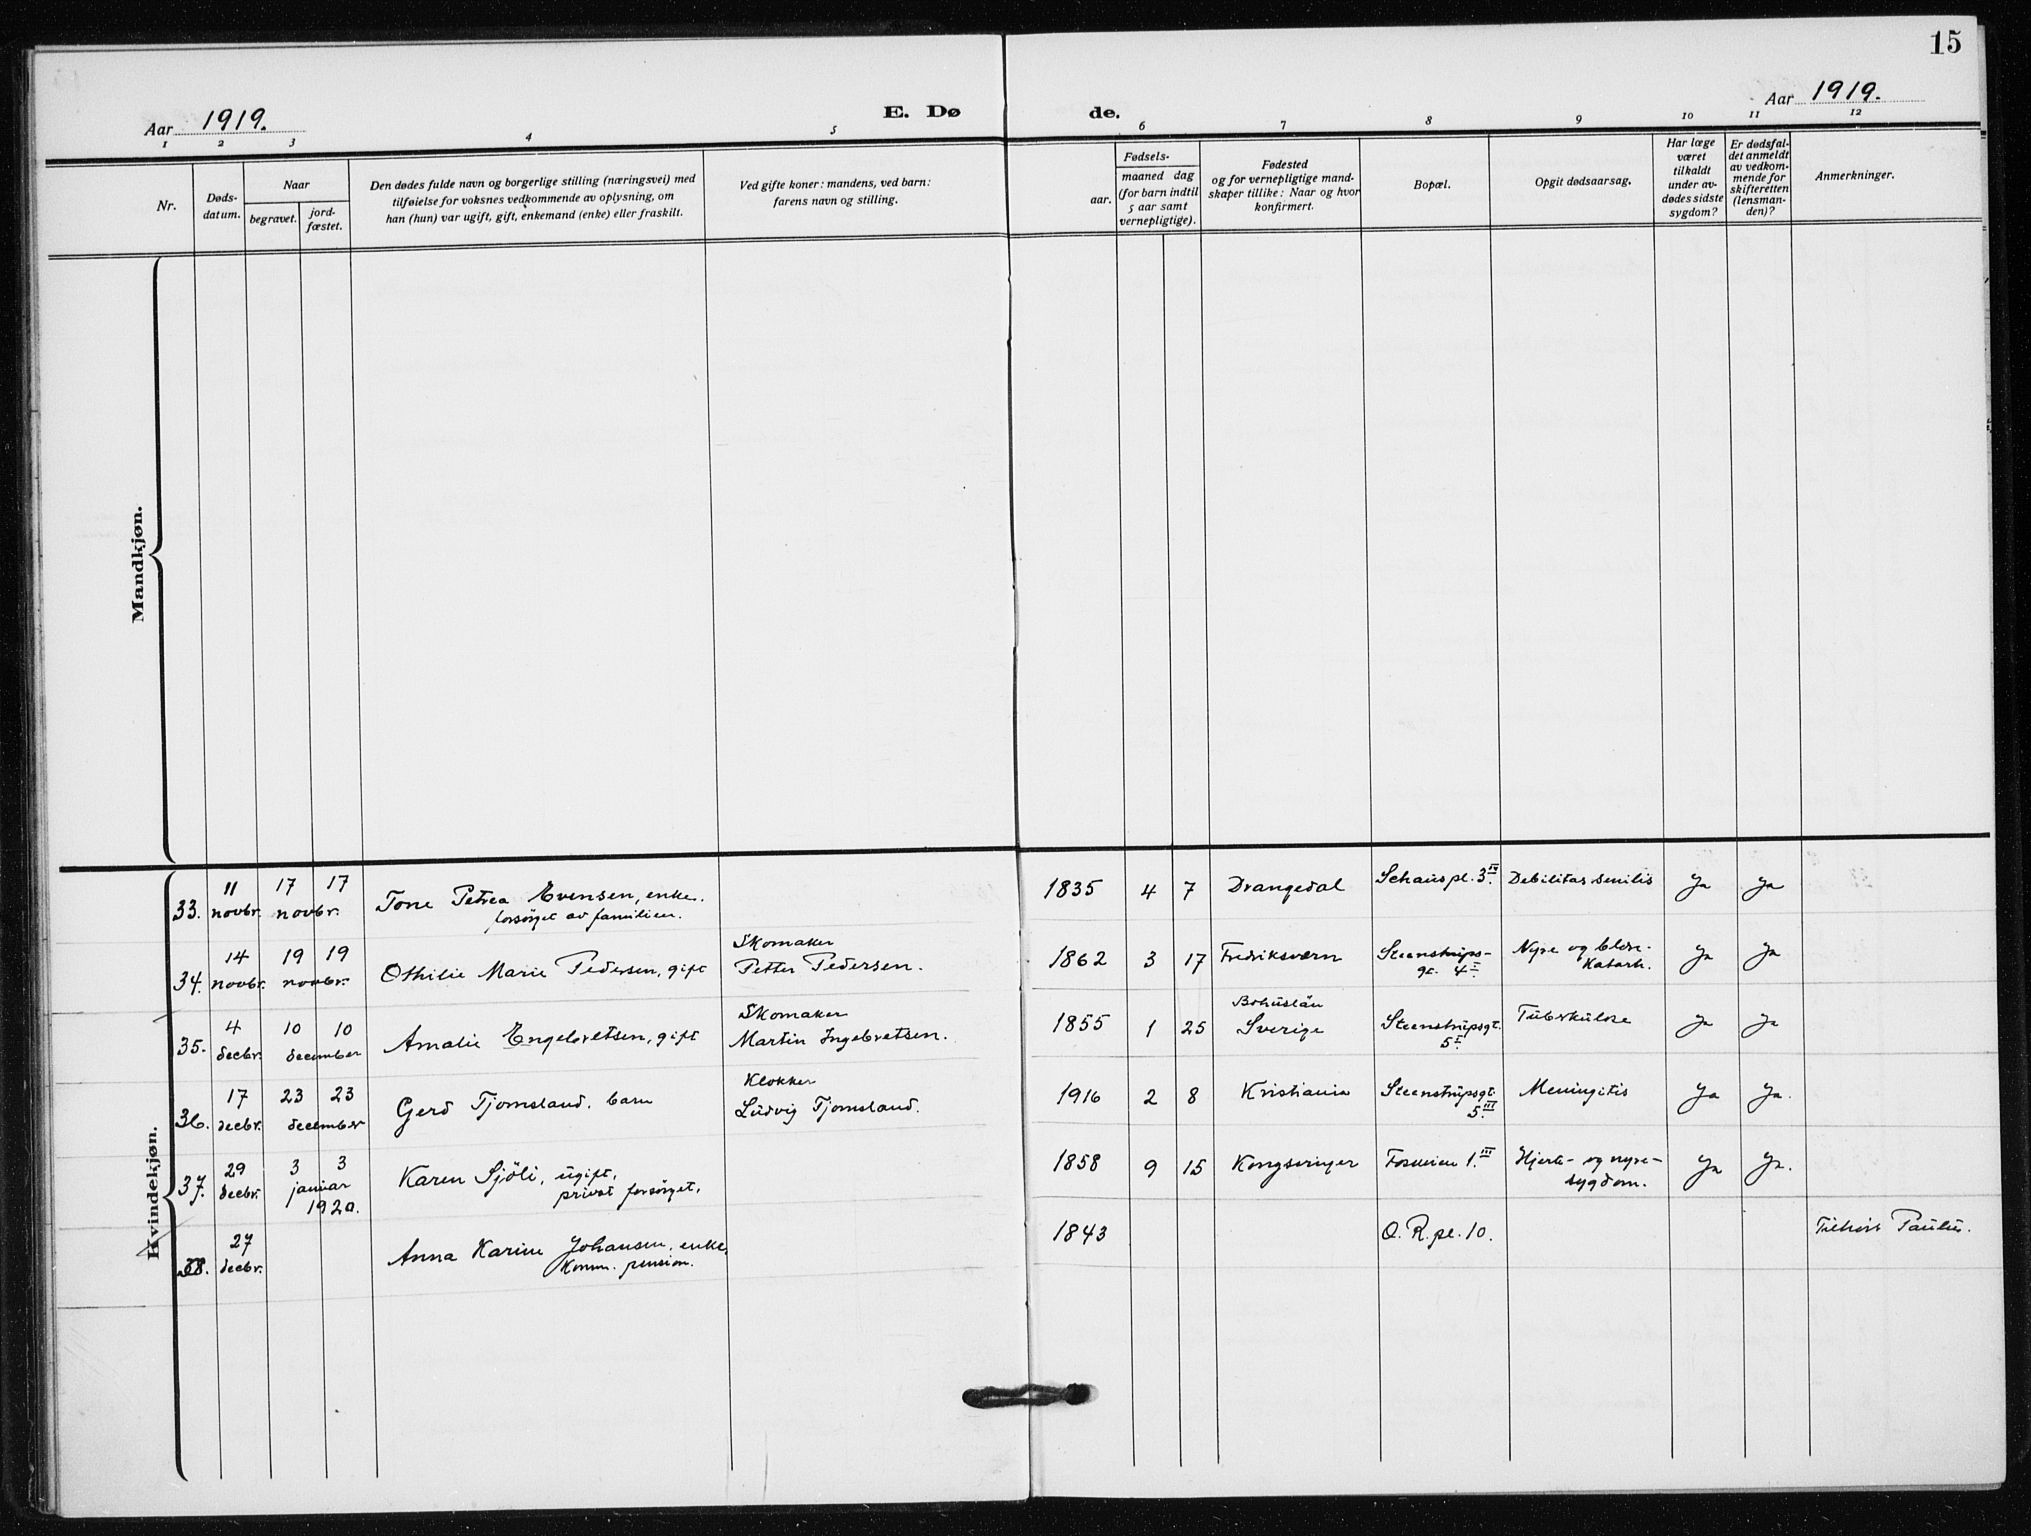 15
Aar 1919.
E. Dø de.
Aar 1919.
1 2 3 4 5 6 7 8 9 10 11 12
Nr.
Døds-
datum.
Naar
begravet.
jord-
fæstet.
Den dødes fulde navn og borgerlige stilling (næringsvei) med
tilføielse for voksnes vedkommende av oplysning, om
han (hun) var ugift, gift, enkemand (enke) eller fraskilt.
Ved gifte koner: mandens, ved barn:
farens navn og stilling.
aar.
Fødsels-
maaned dag
(for barn indtil
5 aar samt
vernepligtige).
Fødested
og for vernepligtige mand-
skaper tillike: Naar og hvor
konfirmert.
Bopæl.
Opgit dødsaarsag.
Har læge
været
tilkaldt
under av-
dødes sidste
sygdom?
Er dødsfal-
det anmeldt
av vedkom-
mende for
skifteretten
(lensman-
den)?
Anmerkninger.
Mandkjøn.
Kvindekjøn.
33. 11 novbr. 17 17 novbr. Tone Petrea Evensen, enke.
forsørget av familien.
1835 4 7 Drangedal Schauspl. 3 IV. Debilitas senilis Ja Ja
34. 14 novbr. 19 19 novbr. Othilie Marie Pedersen, gift
Skomaker
Petter Pedersen.
1862 3 17 Fredriksværn Steenstrups-
gt. 4 I. Nyre og blære-
Katarh. Ja Ja
35. 4 decbr. 10 10 december Amalie Engebretsen, gift
Skomaker
Martin Ingebretsen.
1855 1 25 Bohuslän
Sverige Steenstrupsgt.
5 I. Tuberkulose Ja Ja
36. 17 decbr. 23 23 december Gerd Tjomsland. barn
Klokker
Ludvig Tjomsland.
1916 2 8 Kristiania Steenstrupsgt.
5. III Meningitis Ja Ja.
37. 29 decbr. 3 3 januar
1920. Karen Sjöli, ugift,
privat forsørget.
1858 9 15 Kongsvinger Fosveien 1. III Hjerte- og nyre-
sygdom. Ja Ja.
38. 27 decbr. Anna Karine Johansen, enke
Komm. pension.
1843 O. R. pl. 10. Tilhør. Paulus.